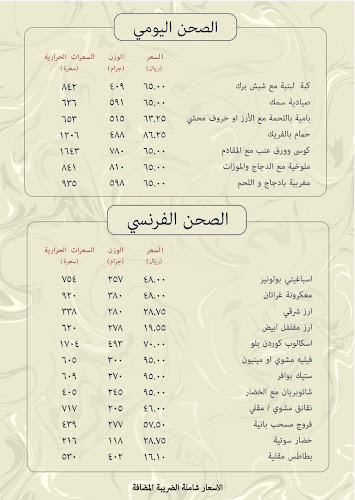 الصحن اليومي
السعر الوزن السعرات الحرارية
(ريال) (جرام) (سعرة)
كبة لبنية مع شيش برك ٦٥.٠٠ ٤٠٩ ٨٤٢
صيادية سمك ٦٥.٠٠ ٥٩١ ٦٢٦
بامية باللحمة مع الأرز او خروف محشي ٦٣.٢٥ ٥١٥ ٦٥٣
حمام بالفريك ٨٦.٢٥ ٤٨٨ ١٢٠٦
كوسى وورق عنب مع المقادم ٦٥.٠٠ ٧٨٠ ١٦٤٣
ملوخية مع الدجاج والموزات ٦٥.٠٠ ٨١٠ ٨٤١
مغربية بادجاج و اللحم ٦٥.٠٠ ٥٩٨ ٩٣٥
الصحن الفرنسي
السعر الوزن السعرات الحرارية
(ريال) (جرام) (سعرة)
اسباغيتي بولونيز ٤٨.٠٠ ٣٥٧ ٧٥٤
معكرونة غراتان ٤٨.٠٠ ٣٨٠ ٩٢٠
ارز شرقي ٢٨.٧٥ ٢٨٠ ٣٣٨
ارز مفلفل ابيض ١٩.٥٥ ٢٧٨ ٦٢٠
اسكالوب كوردن بلو ٧٠.٠٠ ٤٩٣ ١٧٠٤
فيليه مشوي او مينيون ٩٥.٠٠ ٣٠٠ ٦٠٥
ستيك بوافر ٩٥.٠٠ ٣٧٠ ٦٠٩
شاتوبريان مع الخضار ٩٥.٠٠ ٣٤٥ ٤٠٥
نقانق مشوي / مقلي ٤٦.٠٠ ٢٠٥ ٧١٧
فروج مسحب بانية ٥٧.٥٠ ٢٧٧ ٤٣٩
خضار سوتية ٢٨.٧٥ ١١٨ ٢١٦
بطاطس مقلية ١٦.١٠ ٤٠٢ ٥٣٠
الاسعار شاملة الضريبة المضافة